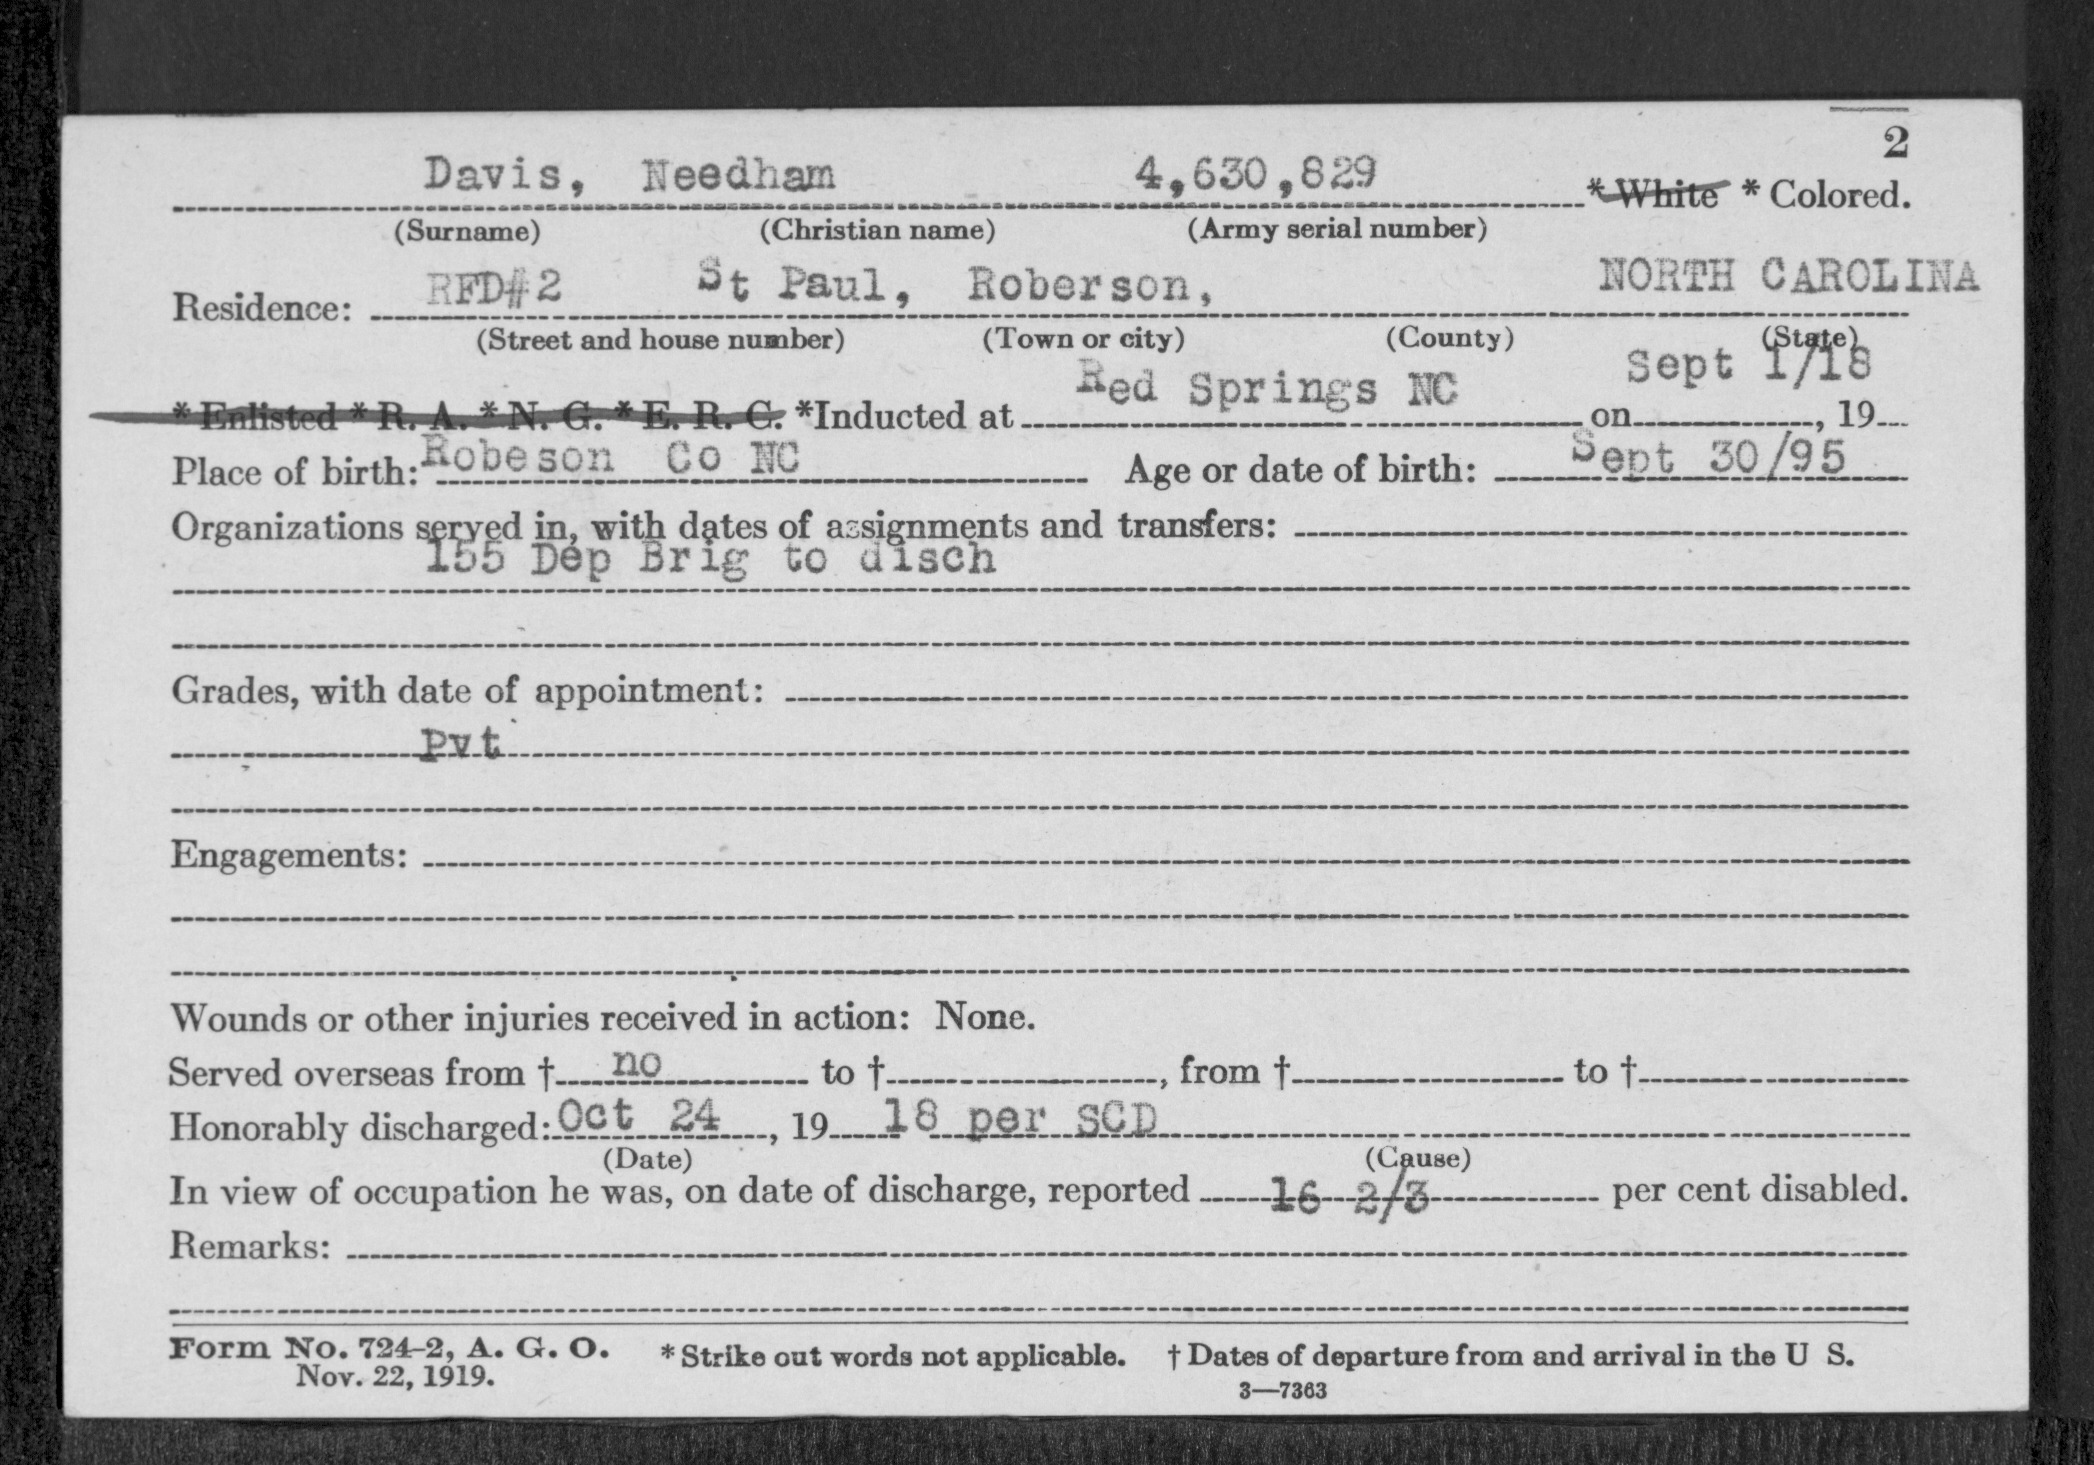 2
Davis, Needham 4,630,829 * White * Colored.
(Surname) (Christian name) (Army serial number)
Residence: RFD#2 St Paul, Roberson, NORTH CAROLINA
(Street and house number) (Town or city) (County) (State)
* Enlisted * R. A. * N. G. * E. R. C. *Inducted at Red Springs NC on Sept 1/18, 19
Place of birth: Robeson Co NC Age or date of birth: Sept 30/95
Organizations served in, with dates of assignments and transfers:
155 Dep Brig to disch
Grades, with date of appointment:
Pvt
Engagements:
Wounds or other injuries received in action: None.
Served overseas from † no to †, from † to †
Honorably discharged: Oct 24, 19 18 per SCD
(Date) (Cause)
In view of occupation he was, on date of discharge, reported 16 2/3 per cent disabled.
Remarks:
Form No. 724-2, A. G. O. * Strike out words not applicable. † Dates of departure from and arrival in the U S.
Nov. 22, 1919.
3—7363